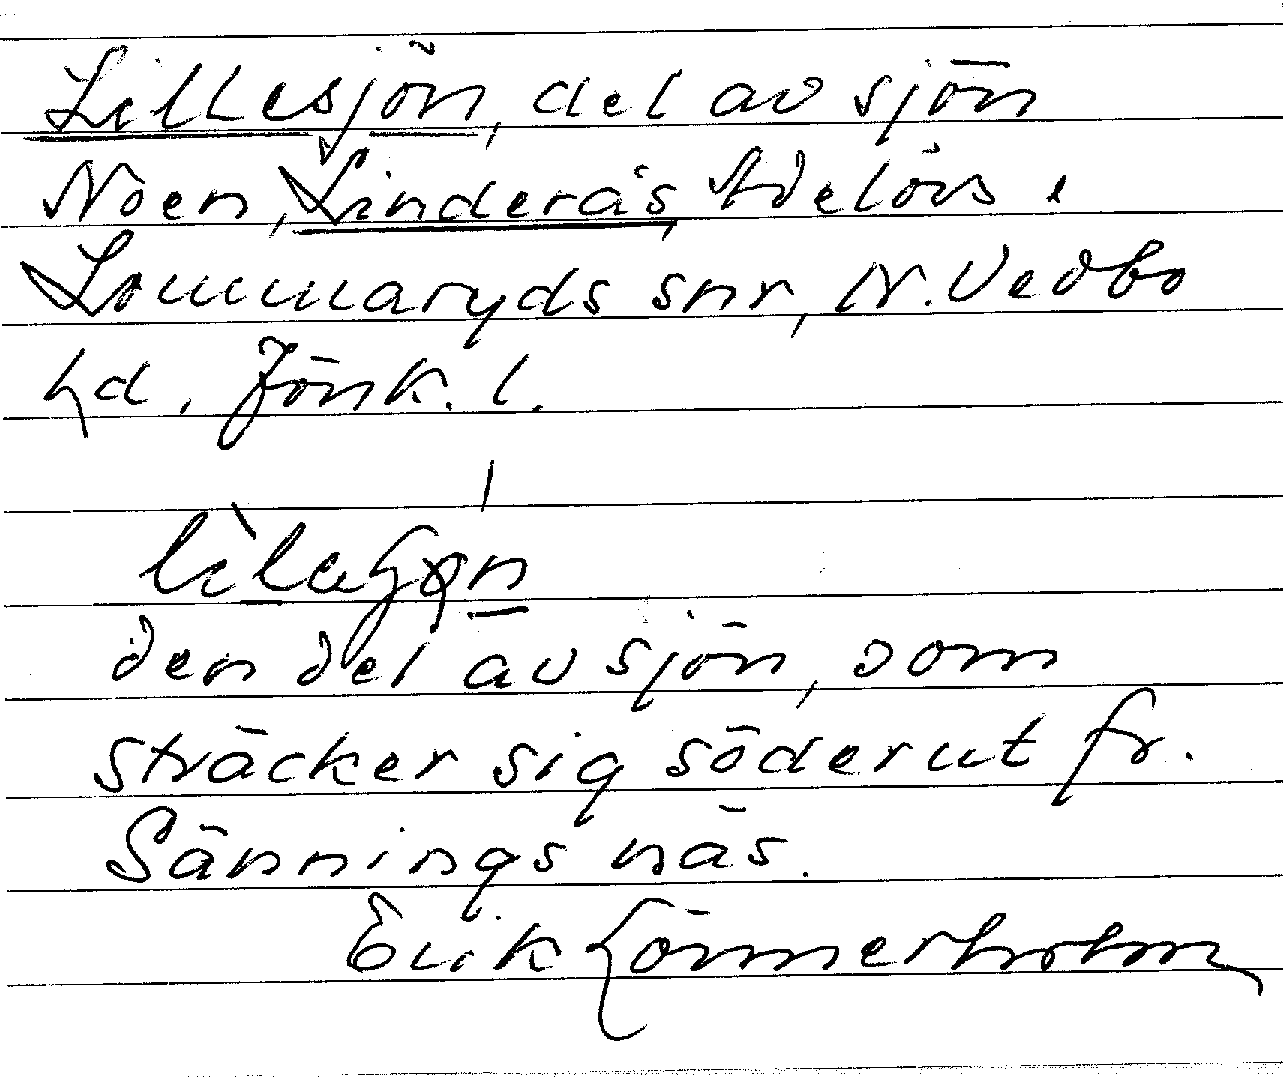 Lillesjön, del av sjön
Noen, Linderås, Adelövs o
Lommaryds snr, N. Vedbo
hd. Jönk. l.
den del av sjön, som
sträcker sig söderut fr.
Sännings näs.
Erik Lönnerholm